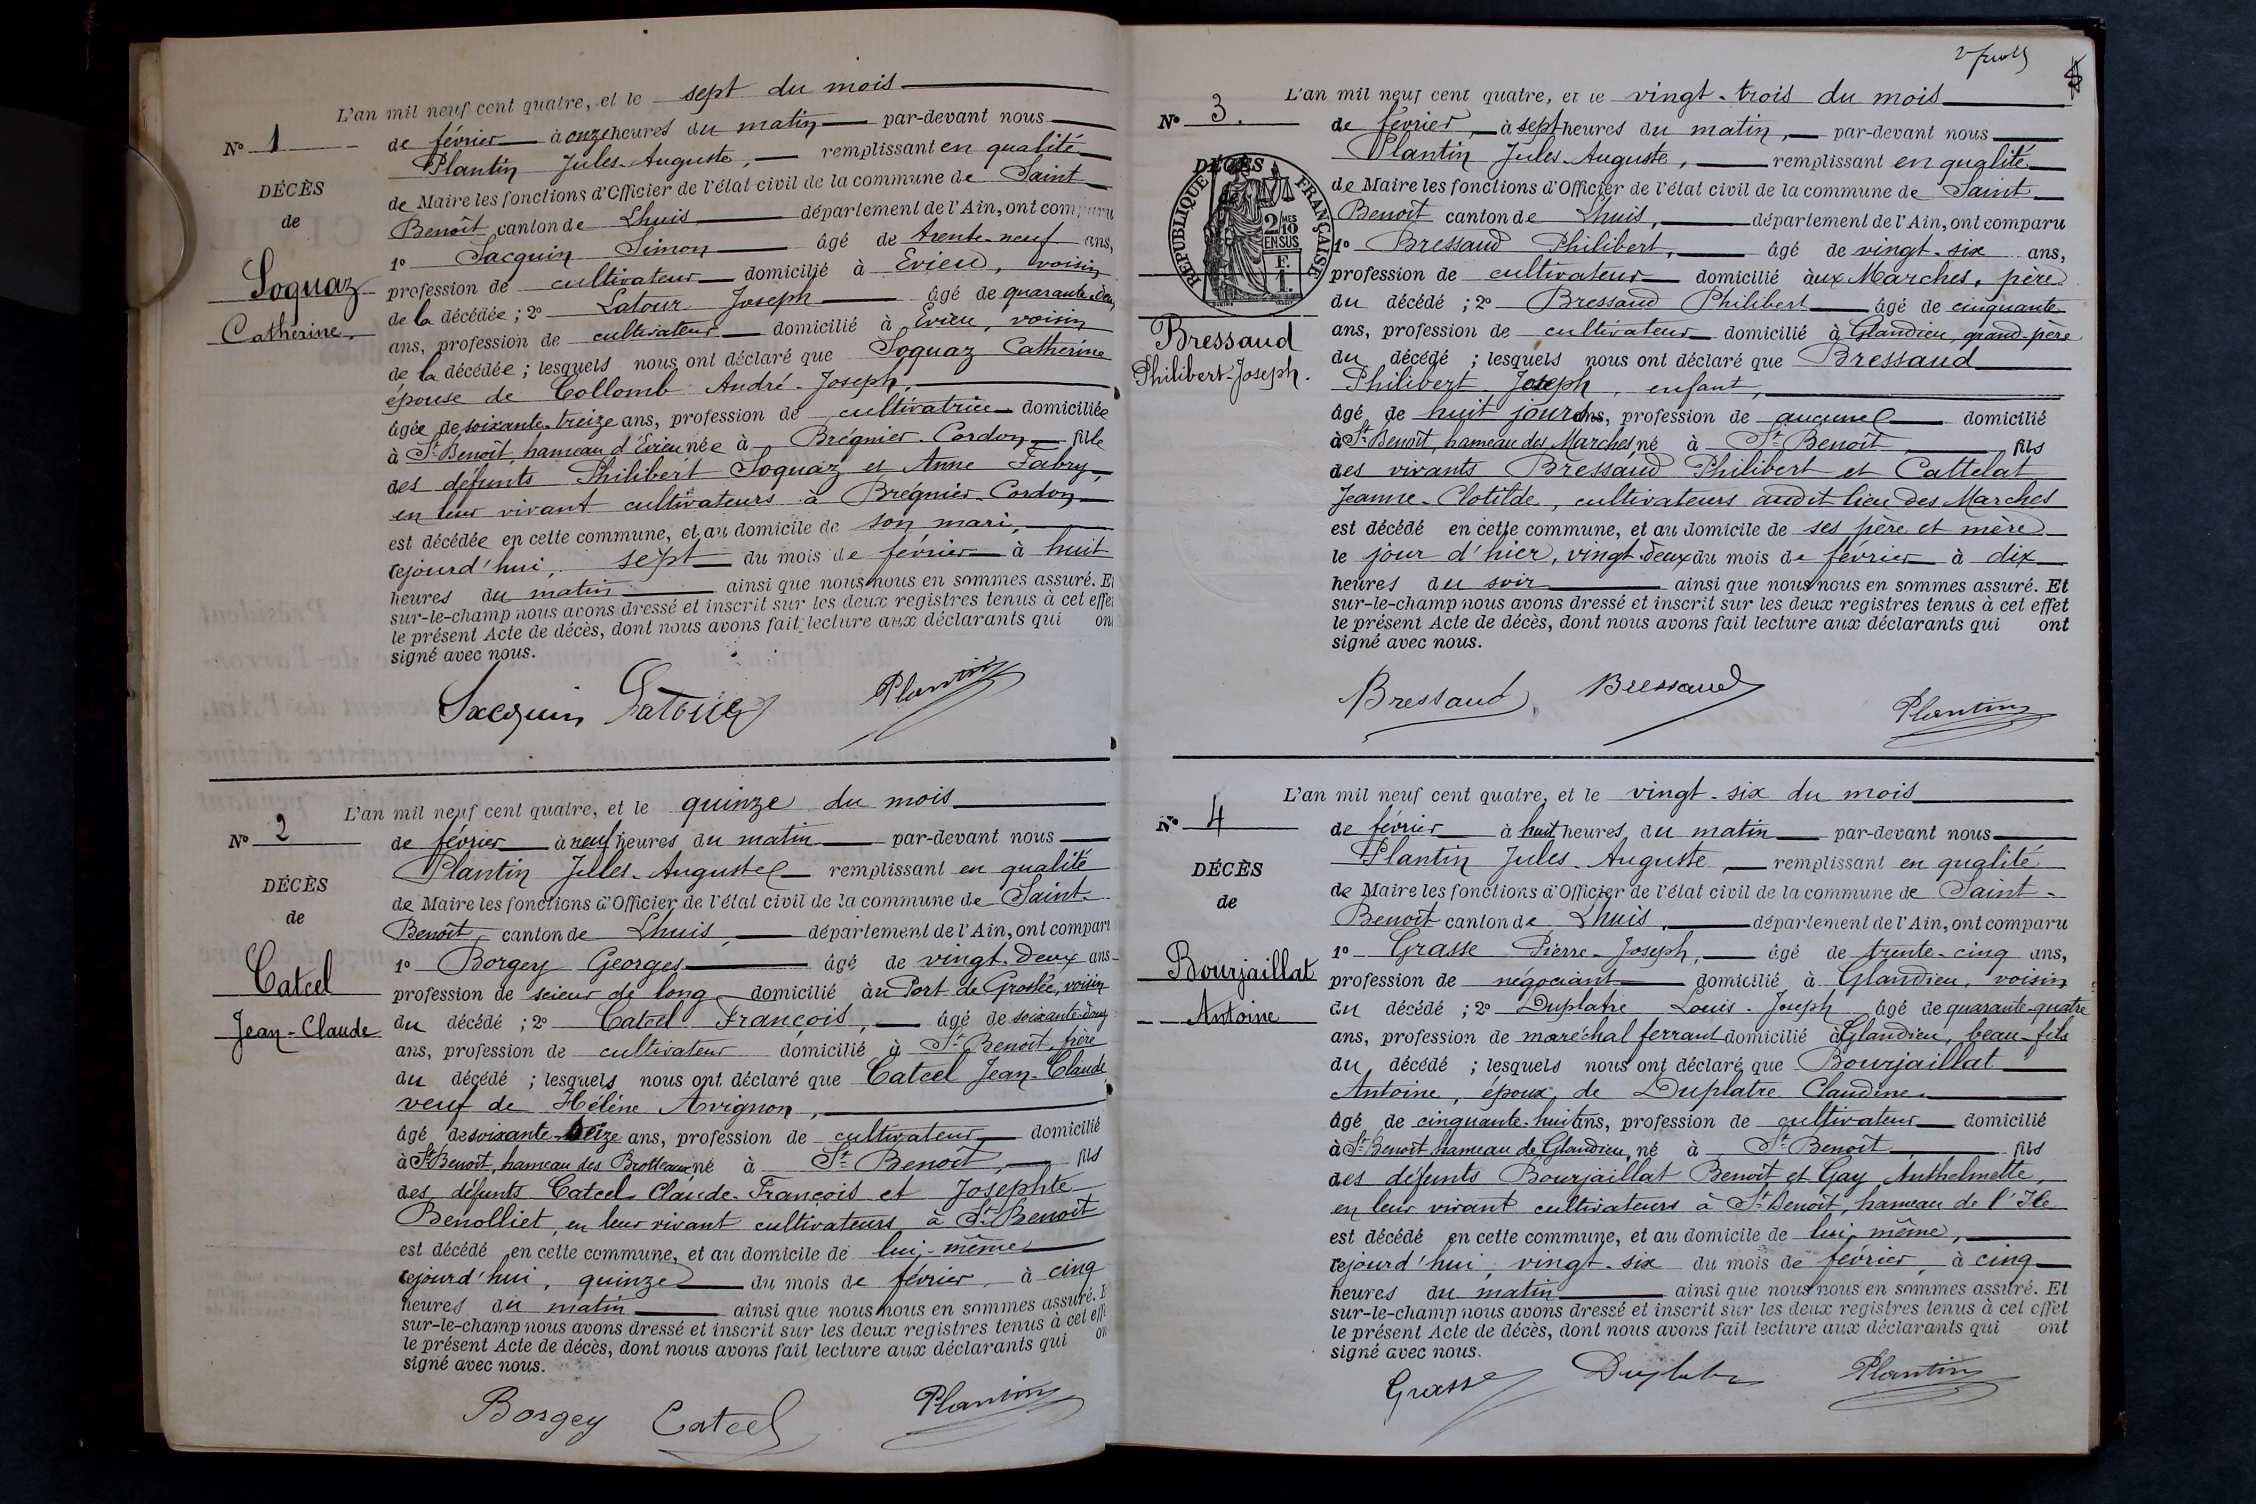 L'an mil neuf cent quatre, et le sept du mois
N° 1
de février à onze heures du matin par-devant nous
Plantin Jules-Auguste, remplissant en qualité
DÉCÈS
de Maire les fonctions d'Officier de l'état civil de la commune de Saint
de
Benoît canton de Lhuis département de l'Ain, ont comparu
1° Jacquin Simon âgé de trente-neuf ans,
Soquaz
profession de cultivateur domicilié à Evieu, voisin
Catherine,
de la décédée ; 2° Latour Joseph âgé de quarante-deux
ans, profession de cultivateur domicilié à Evieu, voisin
de la décédée ; lesquels nous ont déclaré que Soquaz Catherine
épouse de Collomb André-Joseph,
âgée de soixante-treize ans, profession de cultivatrice domiciliée
à St Benoît, hameau d'Evieu née à Brégnier-Cordon fille
des défunts Philibert Soquaz et Anne Fabry,
en leur vivant cultivateurs à Brégnier-Cordon
est décédée en cette commune, et au domicile de son mari,
cejourd'hui, sept du mois de février à huit
heures du matin ainsi que nous nous en sommes assuré. Et
sur-le-champ nous avons dressé et inscrit sur les deux registres tenus à cet effet
le présent Acte de décès, dont nous avons fait lecture aux déclarants qui ont
signé avec nous.
Jacquin Latour Plantin
L'an mil neuf cent quatre, et le quinze du mois
N° 2
de février à neuf heures du matin par-devant nous
Plantin Jules-Auguste remplissant en qualité
DÉCÈS
de Maire les fonctions d'Officier de l'état civil de la commune de Saint-
de
Benoît, canton de Lhuis, département de l'Ain, ont comparu
1° Borgey Georges âgé de vingt-deux ans
Catcel
profession de scieur de long domicilié au Port de Groslée, voisin
Jean-Claude
du décédé ; 2° Catcel François, âgé de soixante-douze
ans, profession de cultivateur domicilié à St Benoît, frère
du décédé ; lesquels nous ont déclaré que Catcel Jean-Claude,
veuf de Hélène Avignon,
âgé de soixante ans, profession de cultivateur domicilié
à St Benoît, hameau des Brotteaux né à St Benoît, fils
des défunts Catcel Claude-François et Josephte
Benolliet, en leur vivant cultivateurs à St Benoît
est décédé en cette commune, et au domicile de lui-même
cejourd'hui, quinze du mois de février, à cinq
heures du matin ainsi que nous nous en sommes assuré. E
sur-le-champ nous avons dressé et inscrit sur les deux registres tenus à cet effe
le présent Acte de décès, dont nous avons fait lecture aux déclarants qui on
signé avec nous.
Borgey Catcel Plantin
L'an mil neuf cent quatre, et le vingt-trois du mois
N° 3.
de février, à sept heures du matin, par-devant nous
Plantin Jules-Auguste, remplissant en qualité
DÉCÈS
RÉPUBLIQUE FRANÇAISE
2 MES 10 EN SUS
F. 1.
de Maire les fonctions d'Officier de l'état civil de la commune de Saint
Benoît canton de Lhuis, département de l'Ain, ont comparu
1° Bressaud Philibert, âgé de vingt-six ans,
profession de cultivateur domicilié aux Marches, père
du décédé ; 2° Bressaud Philibert âgé de cinquante
Bressaud
ans, profession de cultivateur domicilié à Glandieu, grand-père
Philibert-Joseph.
du décédé ; lesquels nous ont déclaré que Bressaud
Philibert Joseph, enfant,
âgé de huit jours ans, profession de aucune domicilié
à St Benoît, hameau des Marches né à St Benoît fils
des vivants Bressaud Philibert et Cattelat
Jeanne-Clotilde, cultivateurs audit lieu des Marches
est décédé en cette commune, et au domicile de ses père et mère
le jour d'hier, vingt-deux du mois de février à dix
heures du soir ainsi que nous nous en sommes assuré. Et
sur-le-champ nous avons dressé et inscrit sur les deux registres tenus à cet effet
le présent Acte de décès, dont nous avons fait lecture aux déclarants qui ont
signé avec nous.
Bressaud Bressaud Plantin
L'an mil neuf cent quatre, et le vingt-six du mois
N° 4
de février à huit heures du matin par-devant nous
Plantin Jules-Auguste, remplissant en qualité
DÉCÈS
de Maire les fonctions d'Officier de l'état civil de la commune de Saint-
de
Benoît canton de Lhuis, département de l'Ain, ont comparu
1° Grasse Pierre-Joseph, âgé de trente-cinq ans,
Bourjaillat
profession de négociant domicilié à Glandieu, voisin
Antoine
du décédé ; 2° Duplatre Louis-Joseph âgé de quarante-quatre
ans, profession de maréchal ferrant domicilié à Glandieu, beau-fils
du décédé ; lesquels nous ont déclaré que Bourjaillat
Antoine, époux de Duplatre Claudine,
âgé de cinquante-huit ans, profession de cultivateur domicilié
à St Benoît, hameau de Glandieu, né à St Benoît, fils
des défunts Bourjaillat Benoît et Gay Anthelmette,
en leur vivant cultivateurs à St Benoît, hameau de l'Ile
est décédé en cette commune, et au domicile de lui-même,
cejourd'hui, vingt-six du mois de février, à cinq
heures du matin ainsi que nous nous en sommes assuré. Et
sur-le-champ nous avons dressé et inscrit sur les deux registres tenus à cet effet
le présent Acte de décès, dont nous avons fait lecture aux déclarants qui ont
signé avec nous.
Grasse Duplatre Plantin